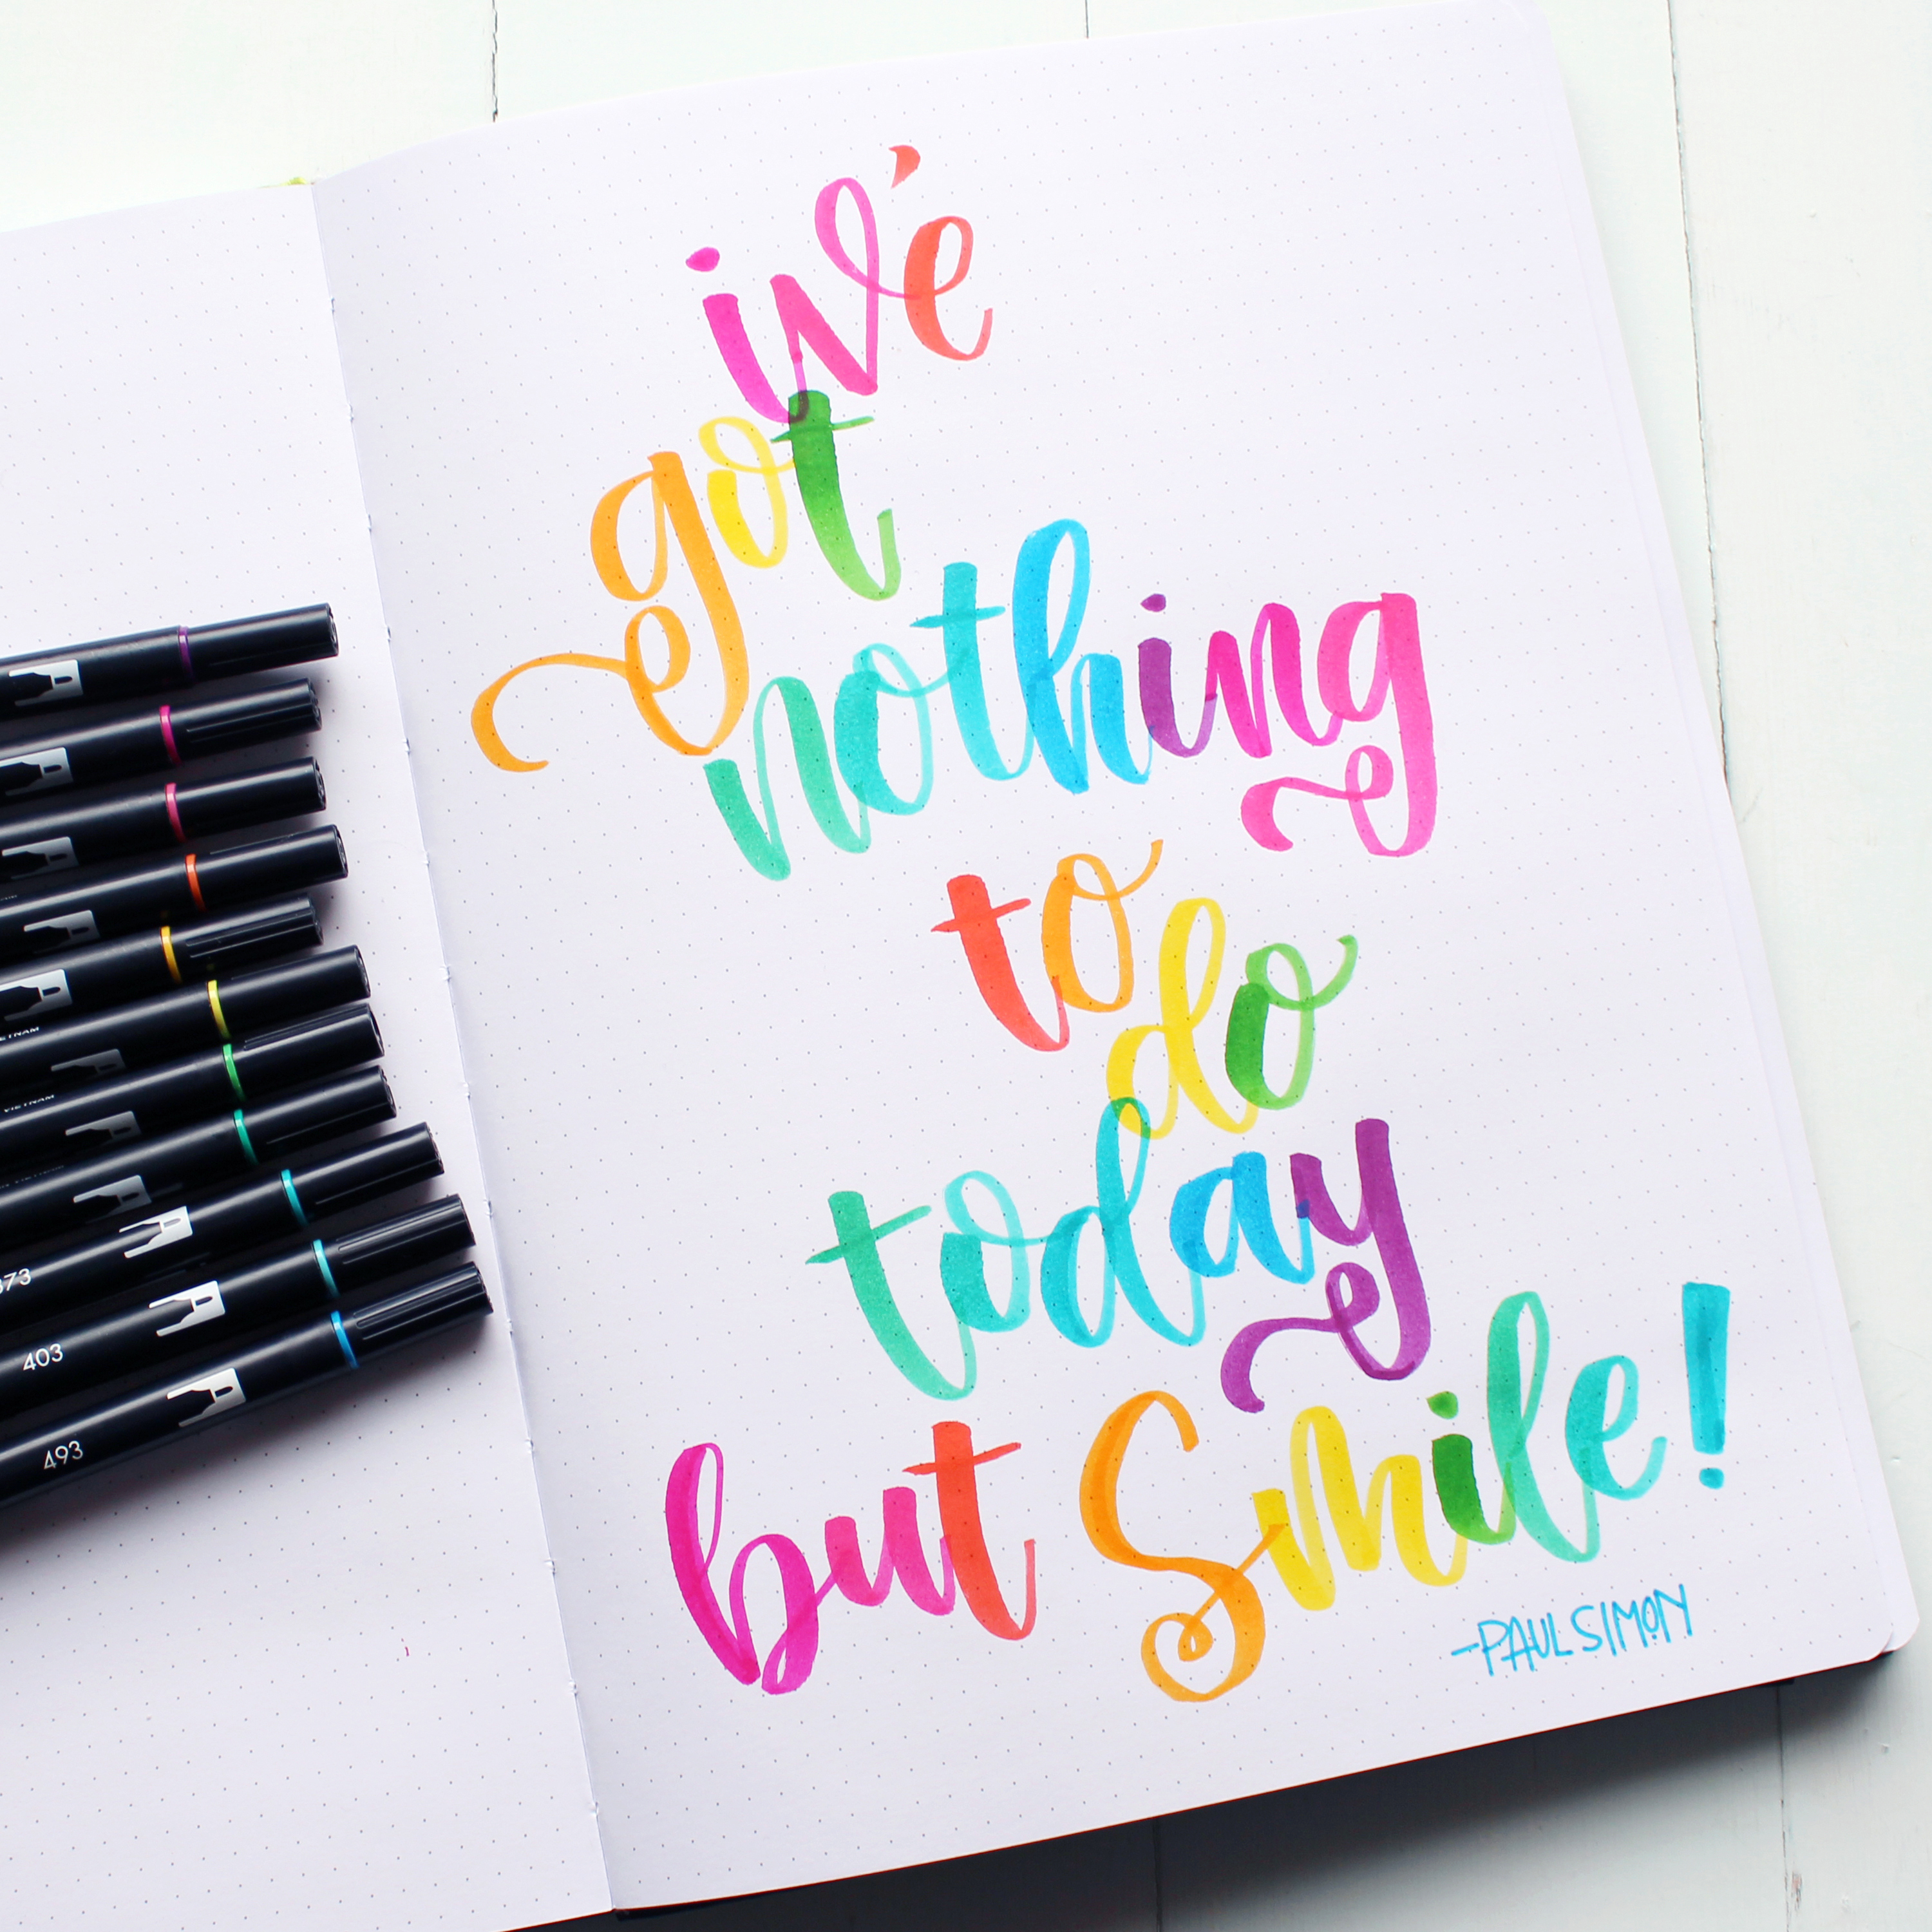 iv'e
got
nothing
to
do
today
but Smile!
-PAUL SIMON
VIETNAM
373
403
493